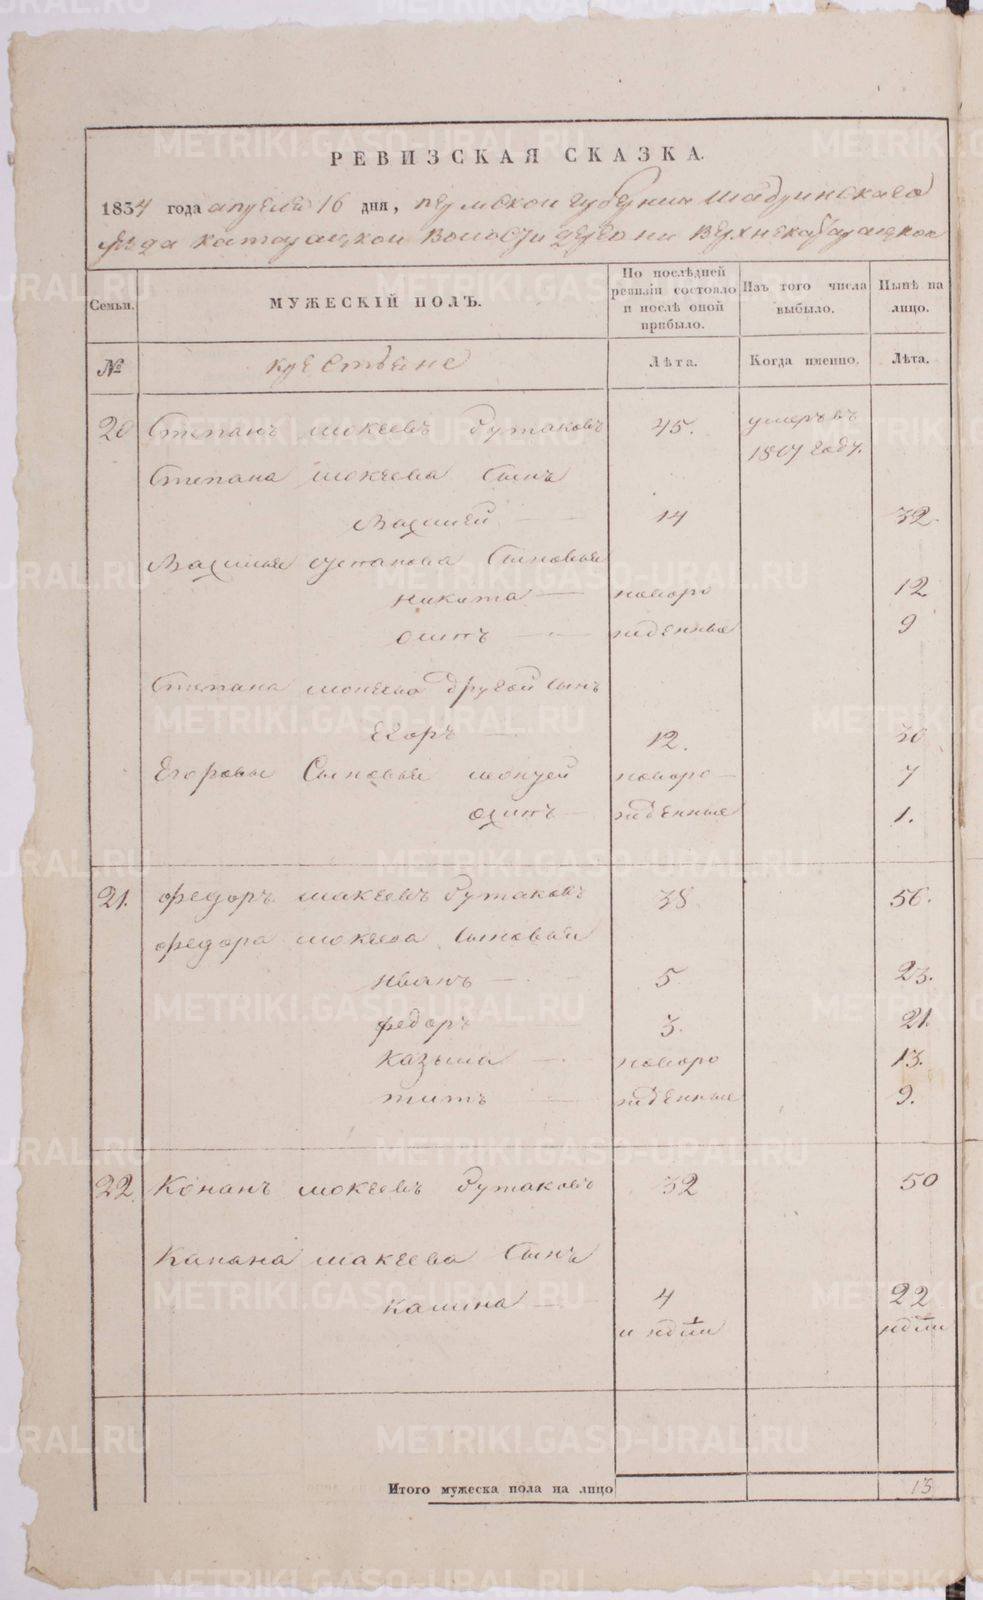 РЕВИЗСКАЯ СКАЗКА.
1834 года апреля 16 дня, пермской губернии Шадринскаго
уѣзда катайской волости деревни Верхнекатайской
Семьи.
МУЖЕСКІЙ ПОЛЪ.
По послѣдней ревизіи состояло и послѣ оной прибыло.
Изъ того числа выбыло.
Нынѣ на лицо.
№
крестьяне
Лѣта.
Когда именно.
Лѣта.
20 Степанъ мокеевъ бутаковъ 45. умеръ въ
1817 году.
Степана мокеева сынъ
Василей 14 32.
Василья степанова сыновья
никита новоро 12
осипъ жденные 9
Степана мокеева другой сынъ
Егоръ 12. 30
Егоровы Сыновья мокей новоро 7
осипъ жденные 1.
21. федоръ макеевъ бутаковъ 38 56.
федора мокеева сыновья
иванъ 5 23.
федоръ 3. 21.
казьма новоро 13.
титъ жденные 9.
22. Конанъ мокеевъ бутаковъ 32 50
Канана макеева сынъ
4 22
Итого мужеска пола на лицо 13
METRIKI.GASO-URAL.RU